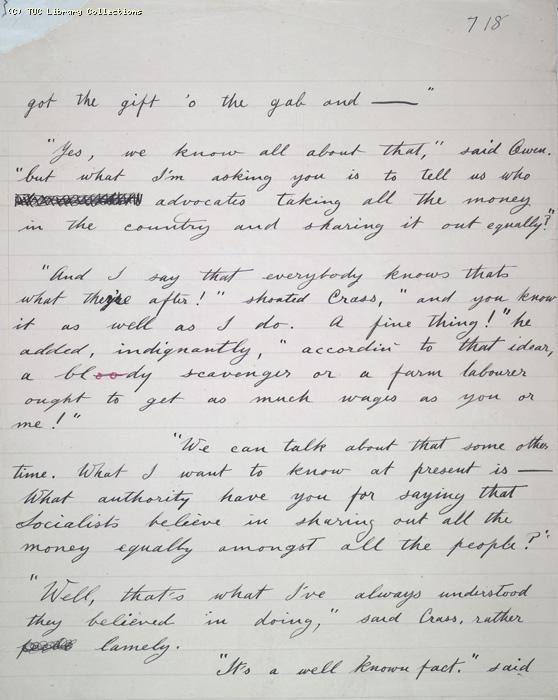 (C) TUC Library Collections
718
got the gift 'o the gab and —"
"Yes, we know all about that," said Owen.
"but what I'm asking you is to tell us who
advocates taking all the money
in the country and sharing it out equally?"
"And I say that everybody knows thats
what they're after!" shouted Crass, "and you know
it as well as I do. A fine thing!" he
added, indignantly, "accordin' to that idear,
a bloody scavenger or a farm labourer
ought to get as much wages as you or
me!"
"We can talk about that some other
time. What I want to know at present is —
What authority have you for saying that
Socialists believe in sharing out all the
money equally amongst all the people?"
"Well, that's what I've always understood
they believed in doing," said Crass, rather
lamely.
"It's a well known fact." said